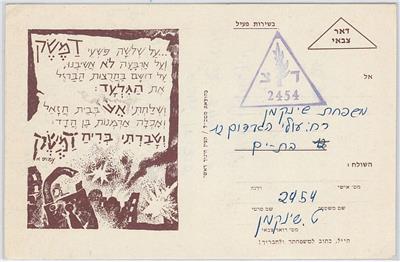 דמשק
...על שלשה פשעי
ועל ארבעה לא אשיבנו,
על דושם בחרצות הברזל
את הגלעד:
ושלחתי אש בבית חזאל
ואכלה ארמנות בן הדד:
ושברתי בריח דמשק
עמוס א'
בשירות פעיל
דאר
צבאי
ד צ
2454
אל
משפחת שינקמן
רח' עולי הגרדום 12
בת-ים
השולח:
מס' אישי
דרגה
2454
שם משפחה
שם פרטי
ט. שינקמן
מס' דואר צבאי
חייל, כתוב למשפחתך ולחבריך!